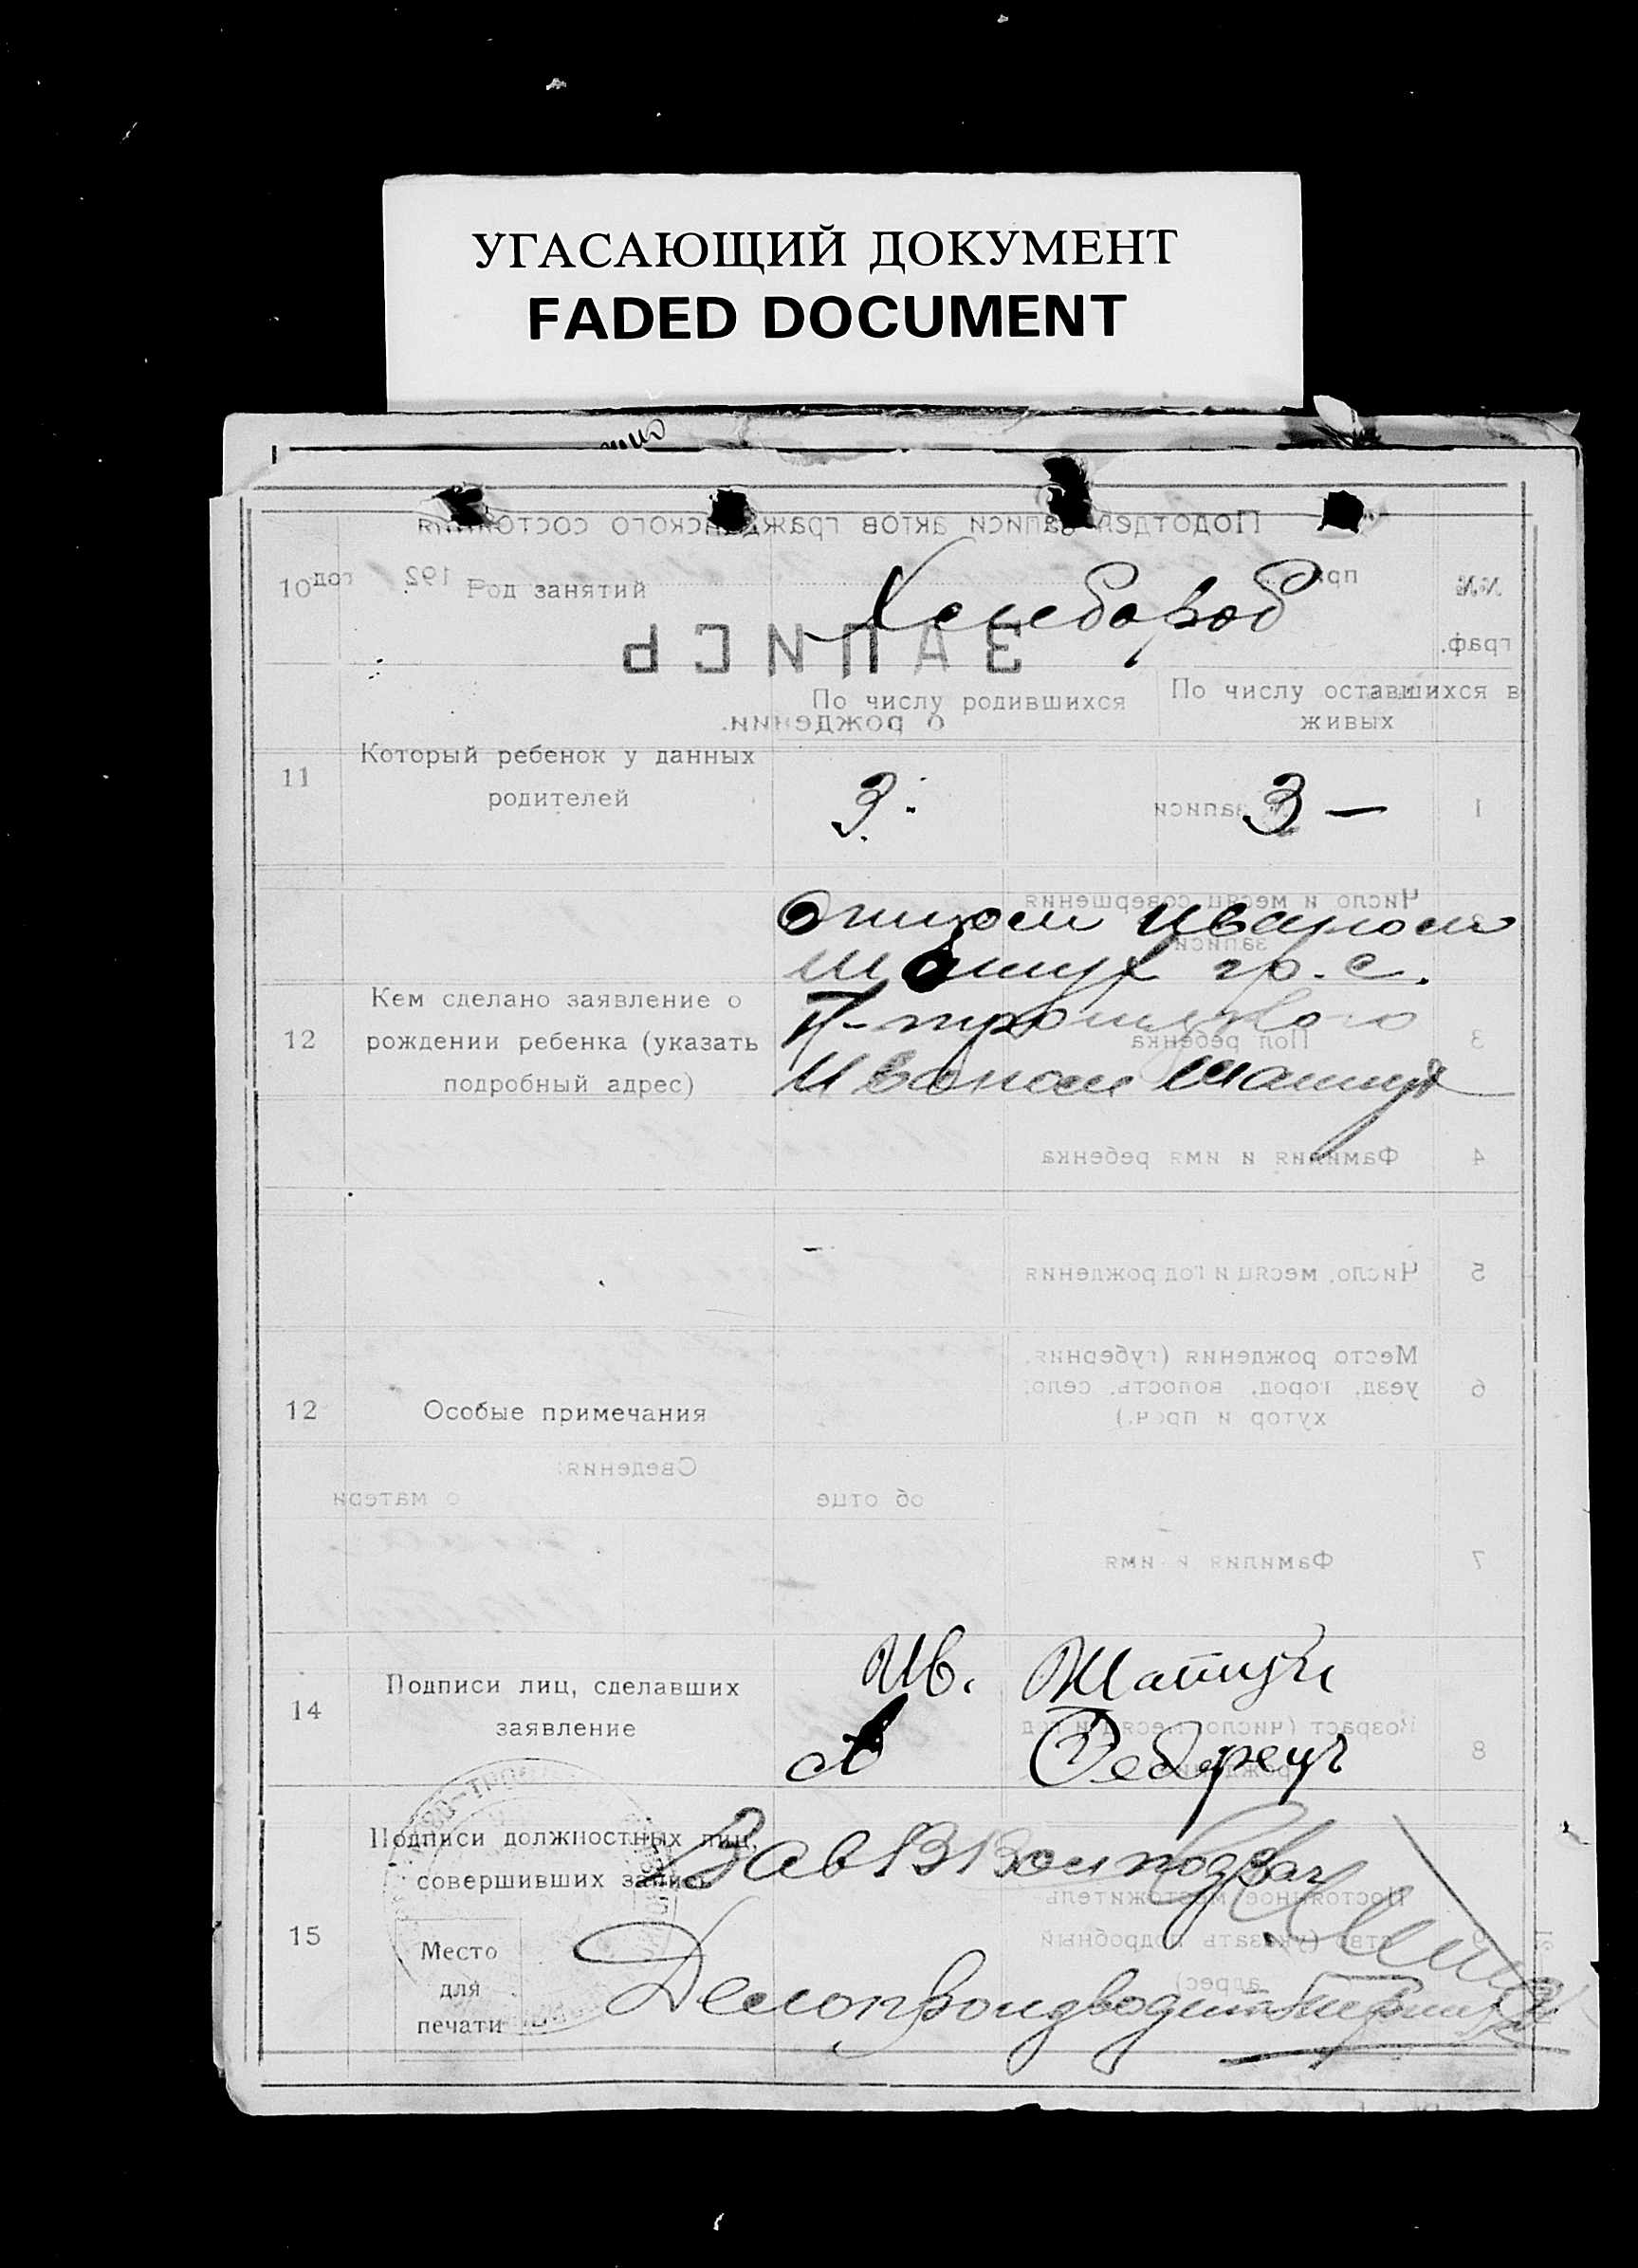 УГАСАЮЩИЙ ДОКУМЕНТ
FADED DOCUMENT
Подотдел записи актов гражданского состояния
при
192 год
№№ граф.
ЗАПИСЬ
о рождении.
10 Род занятий Хлебороб
По числу родившихся
По числу оставшихся в живых
11 Который ребенок у данных
родителей
3. 3 —
12 Кем сделано заявление о
рождении ребенка (указать
подробный адрес)
Отцом Иваном
гр. с.
Иваном
12 Особые примечания
14 Подписи лиц, сделавших
заявление
Ив.
15 Подписи должностных лиц,
совершивших запись
Зав
Делопроизводитель
Место
для
печати
1 записи
2 Число и месяц совершения
записи
3 Пол ребенка
4 Фамилия и имя ребенка
5 Число, месяц и год рождения
6 Место рождения (губерния,
уезд, город, волость, село,
хутор и проч.)
Сведения:
об отце
о матери
7 Фамилия и имя
8 Возраст (число, месяц и год
9 Постоянное местожитель
ство (указать подробный
адрес)